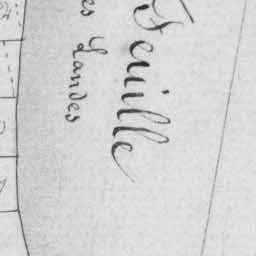 Feuille
es Landes